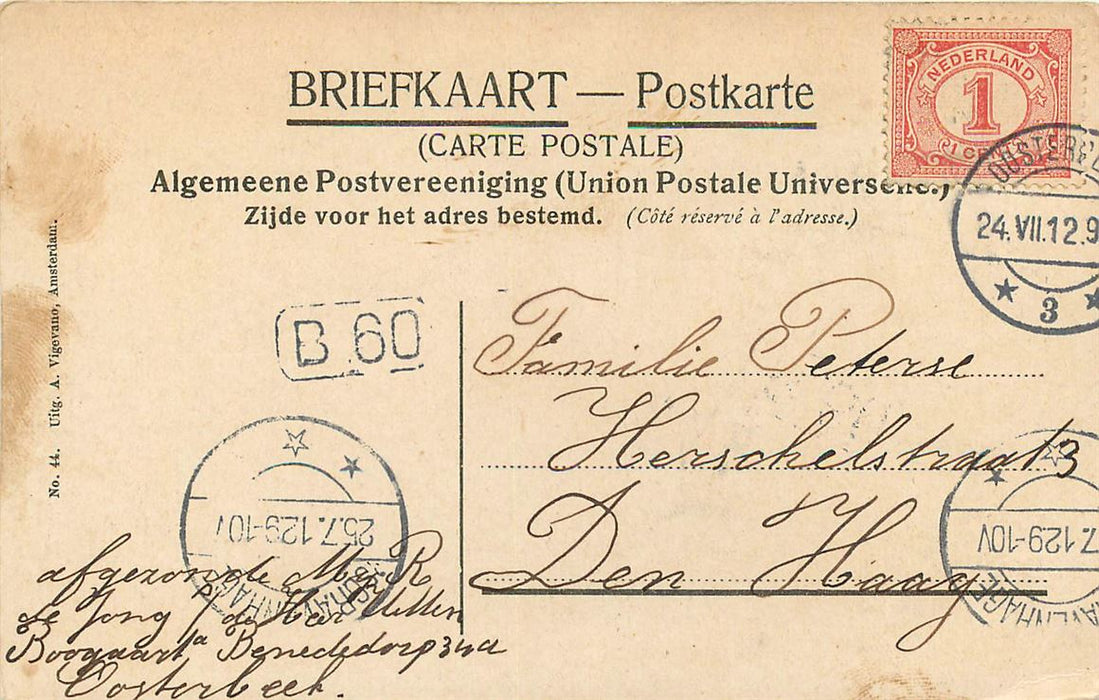 BRIEFKAART — Postkarte
(CARTE POSTALE)
Algemeene Postvereeniging (Union Postale Universelle.)
Zijde voor het adres bestemd. (Côté réservé à l'adresse.)
NEDERLAND
1
OOSTERBE
24.VII.12.9
3
No. 44. Uitg. A. Vigevano, Amsterdam.
B 60
Familie Peterse
Herschelstraat 3
Den Haag
25.7.12 9-10V
GRAVENHAGE
7.12 9-10V
AVENHAGE
afgezonde M R
de Jong
Boogaart Benededorp
Oosterbeek.